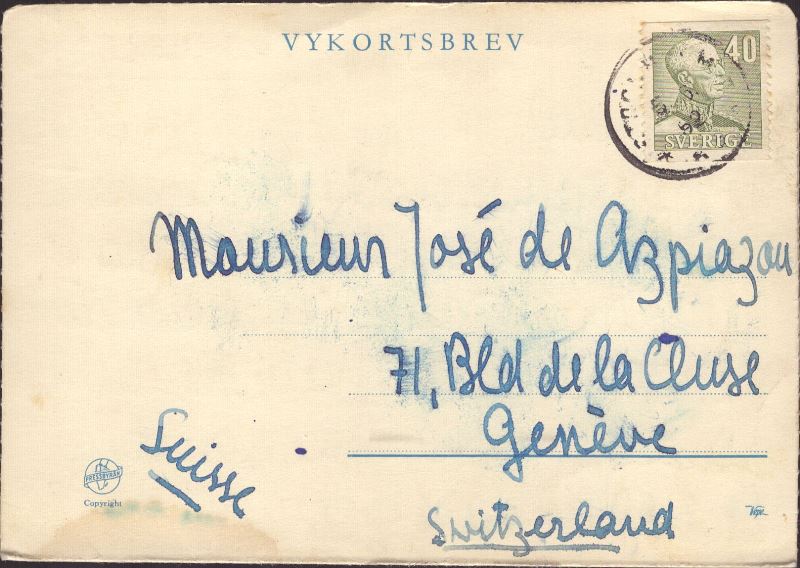 VYKORTSBREV
40
SVERIGE
Monsieur José de Azpiazou
71, Bld de la Cluse
Genève
Suisse
Switzerland
PRESSBYRÅN
Copyright